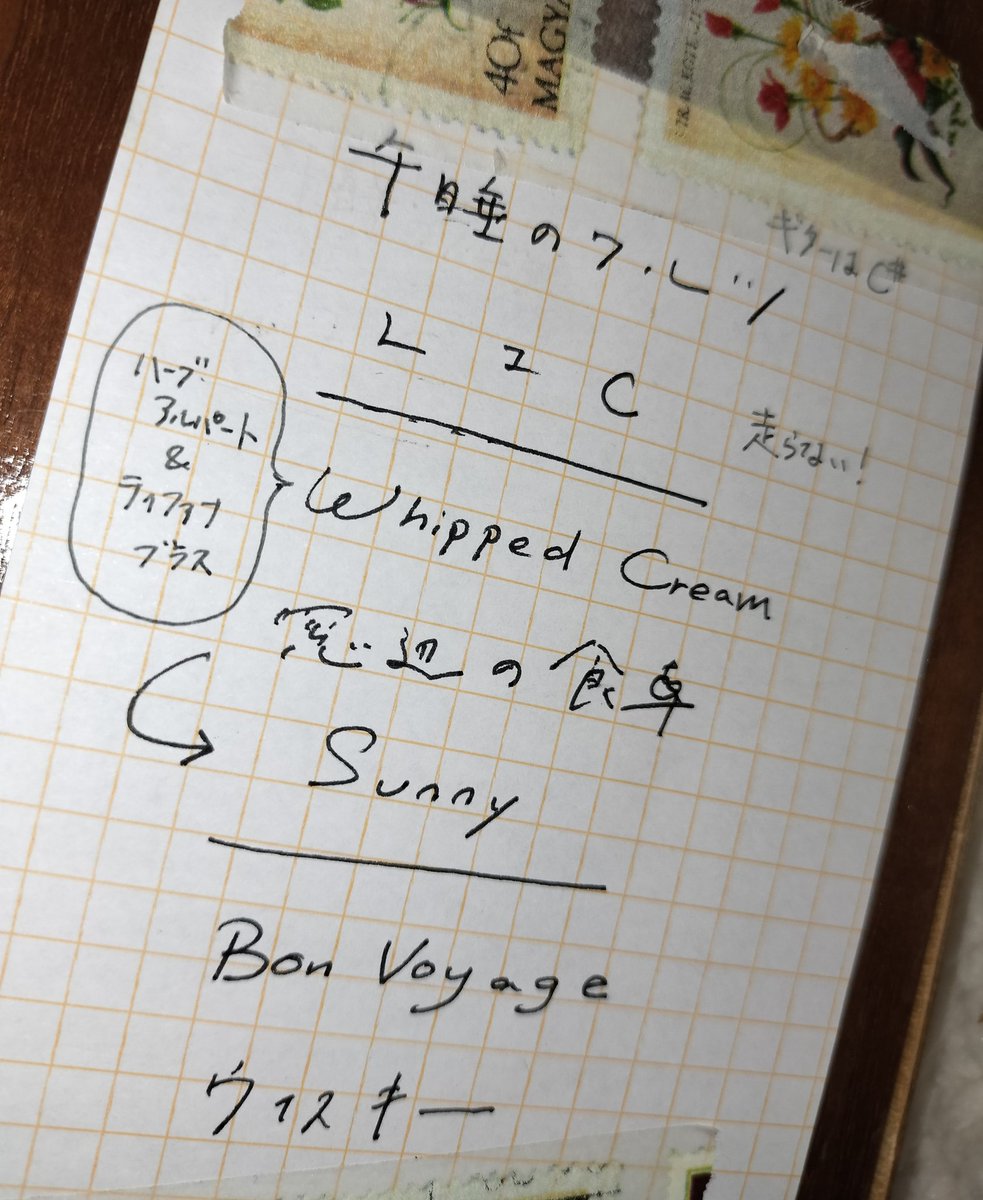 40f
MAGYA
午睡のワルツ
ギターはC#
走らない!
ハーブ
アルパート
&
ティファナ
ブラス
Whipped Cream
窓辺の食卓
Sunny
Bon Voyage
ウィスキー